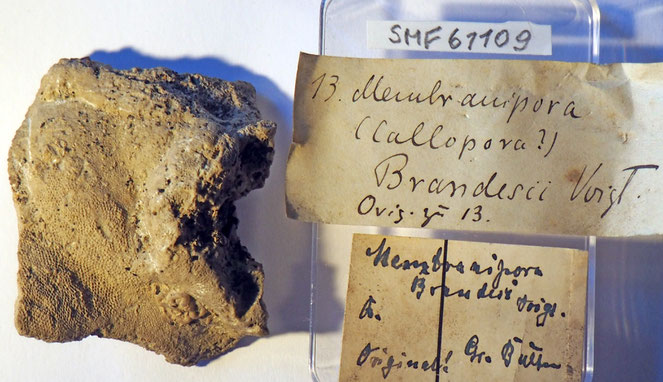 SMF 61109
13. Membranipora
(Callopora?)
Brandesii Voigt.
Orig. zu 13.
Membranipora
Brandesi Voigt.
Original! Gr. Bülten